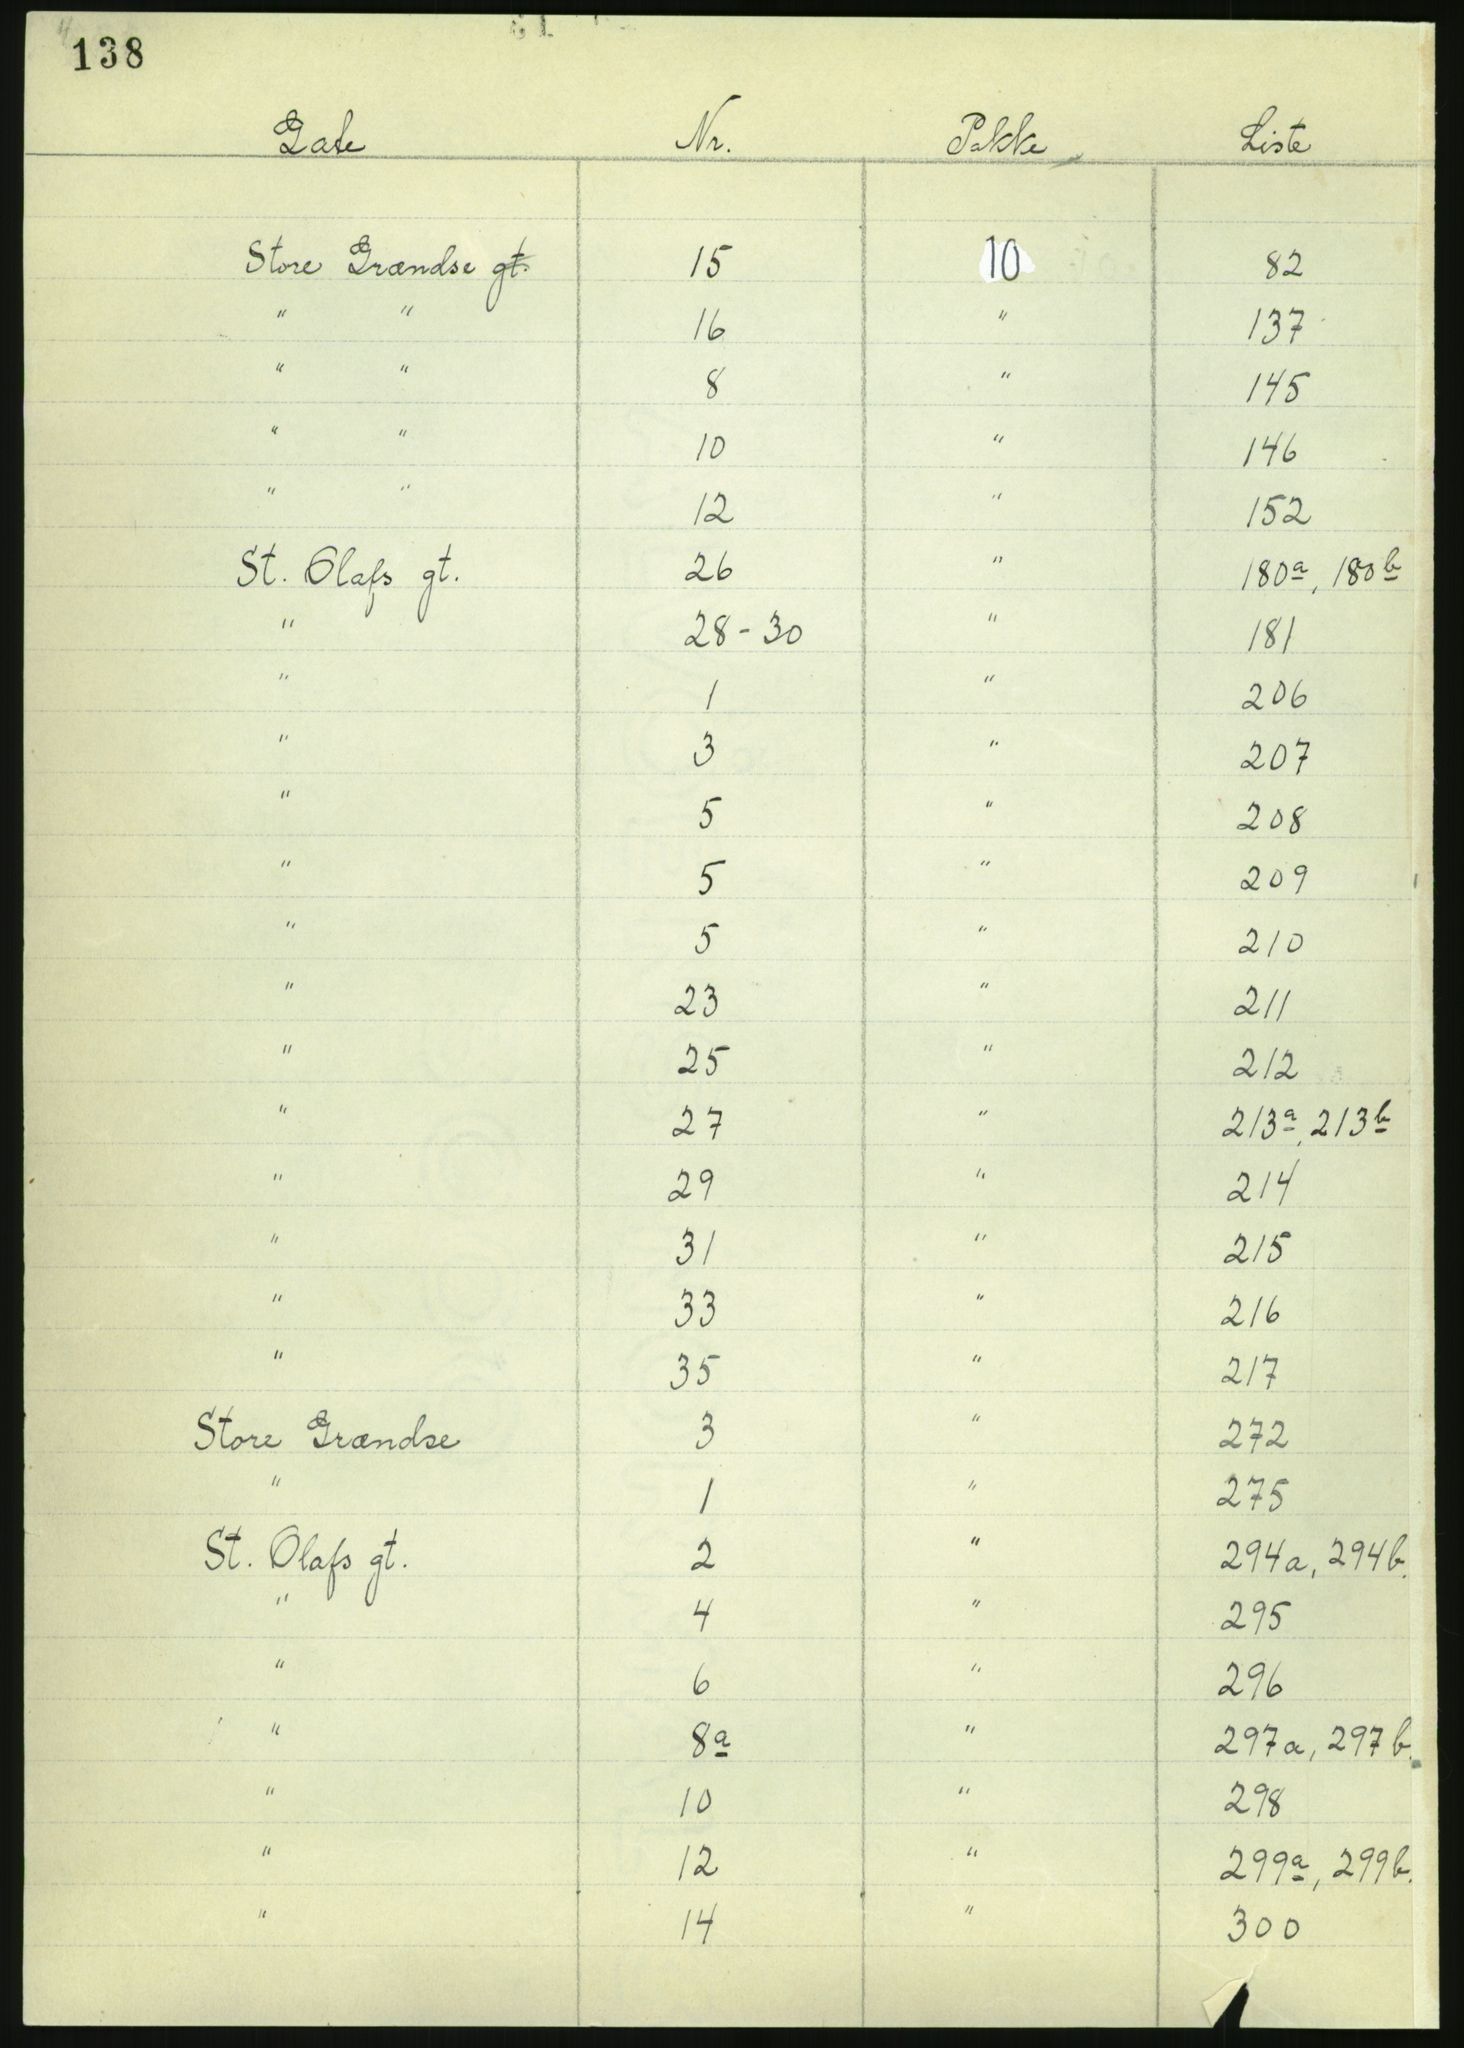 138
Gate Nr. Pakke Liste
Store Grændse gt. 15 10 82
" " 16 " 137
" " 8 " 145
" " 10 " 146
" " 12 " 152
St. Olafs gt. 26 " 180a, 180b
" 28-30 " 181
" 1 " 206
" 3 " 207
" 5 " 208
" 5 " 209
" 5 " 210
" 23 " 211
" 25 " 212
" 27 " 213a, 213b
" 29 " 214
" 31 " 215
" 33 " 216
" 35 " 217
Store Grændse 3 " 272
" 1 " 275
St. Olafs gt. 2 " 294a, 294b.
" 4 " 295
" 6 " 296
" 8a " 297a, 297b.
" 10 " 298
" 12 " 299a, 299b.
" 14 " 300